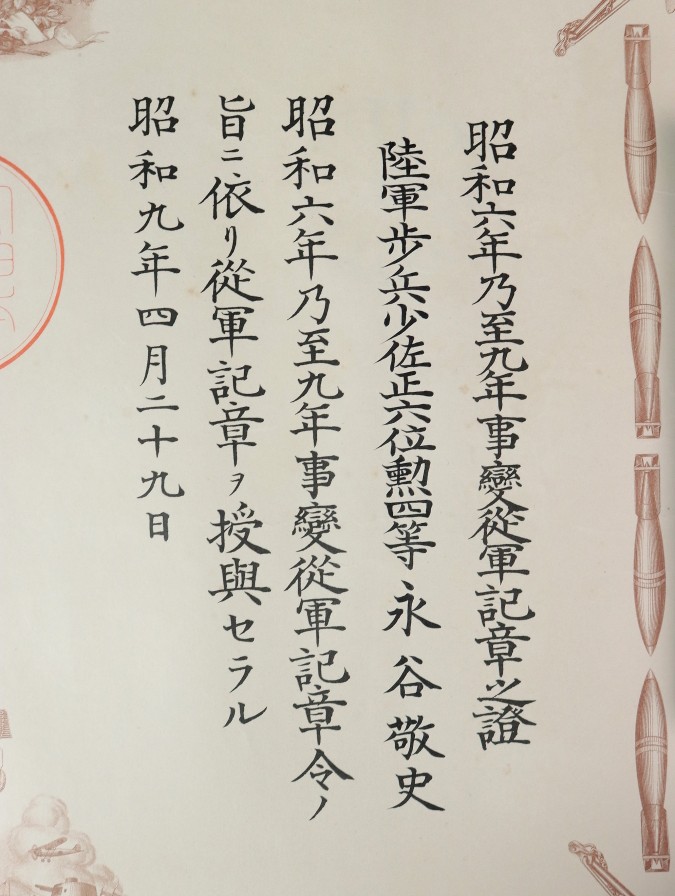 昭和六年乃至九年事變從軍記章之證
陸軍歩兵少佐正六位勲四等永谷敬史
昭和六年乃至九年事變從軍記章令ノ
旨ニ依リ從軍記章ヲ授與セラル
昭和九年四月二十九日